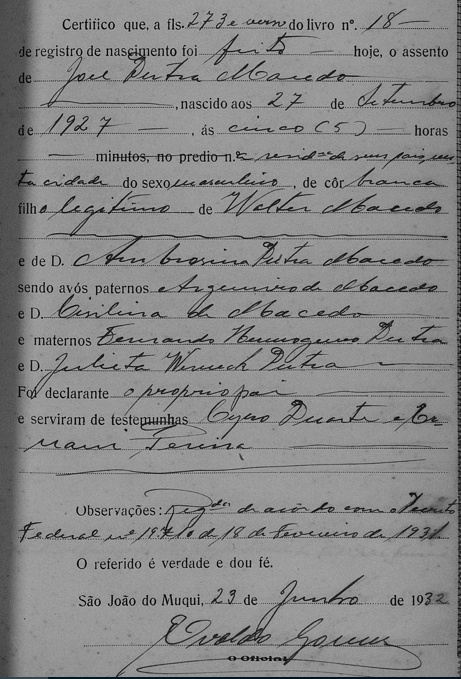 Certifico que, a fls. 273 e verso do livro nº. 18 —
de registro de nascimento foi feito — hoje, o assento
de Joel Dutra Macedo
, nascido aos 27 de Setembro
de 1927 — , ás cinco (5) — horas
— minutos, no predio n.º resid.ª de seus paes nes
ta cidade do sexo masculino, de côr branca
filho legitimo de Walter Macedo
e de D. Ambrosina Dutra Macedo
sendo avós paternos Argemiro de Macedo
e D. de Macedo
e maternos Fernando Dutra
e D. Julieta Werneck Dutra
Foi declarante o proprio pai
e serviram de testemunhas Cyro Duarte e Er
nani Pereira
Observações: de acôrdo com o Decreto
Federal nº de 18 de Fevereiro de 1931.
O referido é verdade e dou fé.
São João do Muqui, 23 de Junho de 1932
Evaldo Gomes
O Oficial